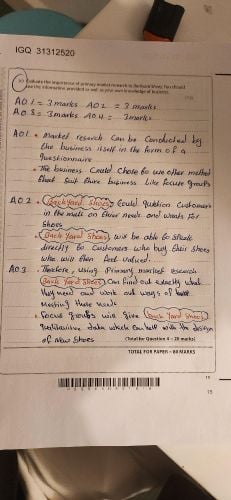 IGQ 31312520
Evaluate the importance of primary market research to Backyard Shoes. You should
use the information provided as well as your own knowledge of business.
AO1 = 3 marks AO2 = 3 marks
AO3 = 3 marks AO4 = 3 marks
AO1 • Market reserch can be conducted by
the business itself in the form of a
questionnaire
• The business could chose to use other method
that suit there business like focuse groups
AO2 • Back Yard Shoes could question customers
in the malls on their needs and wants for
Shoes
• Back Yard Shoes will be able to speak
directly to customers who buy their shoes
who will then feel valued.
AO3 • Therefore, using Primary market research
Back Yard Shoes can find out exactly what
they need and work out ways of
meeting those needs
• Focus groups will give Back Yard Shoes
qualitative data which can help with the design
of New Shoes
(Total for Question 4 = 20 marks)
TOTAL FOR PAPER = 80 MARKS
15